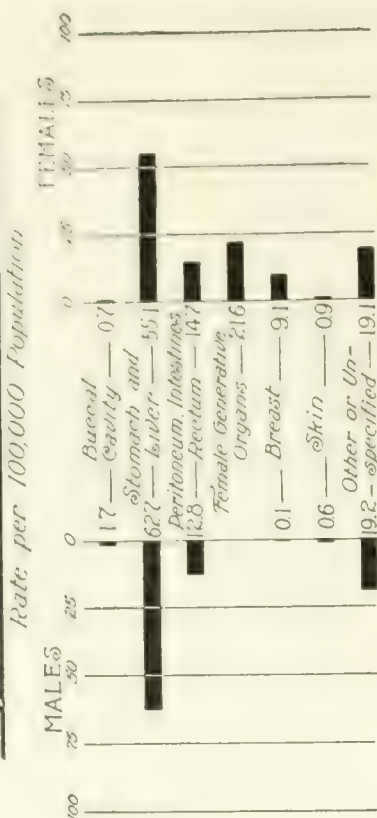 Rate per 100,000 Population
MALES FEMALES
100 75 50 25 0 0 25 50 75 100
Buccal
1.7 — Cavity — 0.7
Stomach and
62.7 — Liver — 55.1
Peritoneum, Intestines
12.8 — Rectum — 14.7
Female Generative
Organs — 21.6
0.1 — Breast — 9.1
0.6 — Skin — 0.9
Other or Un-
19.2 — specified — 19.1